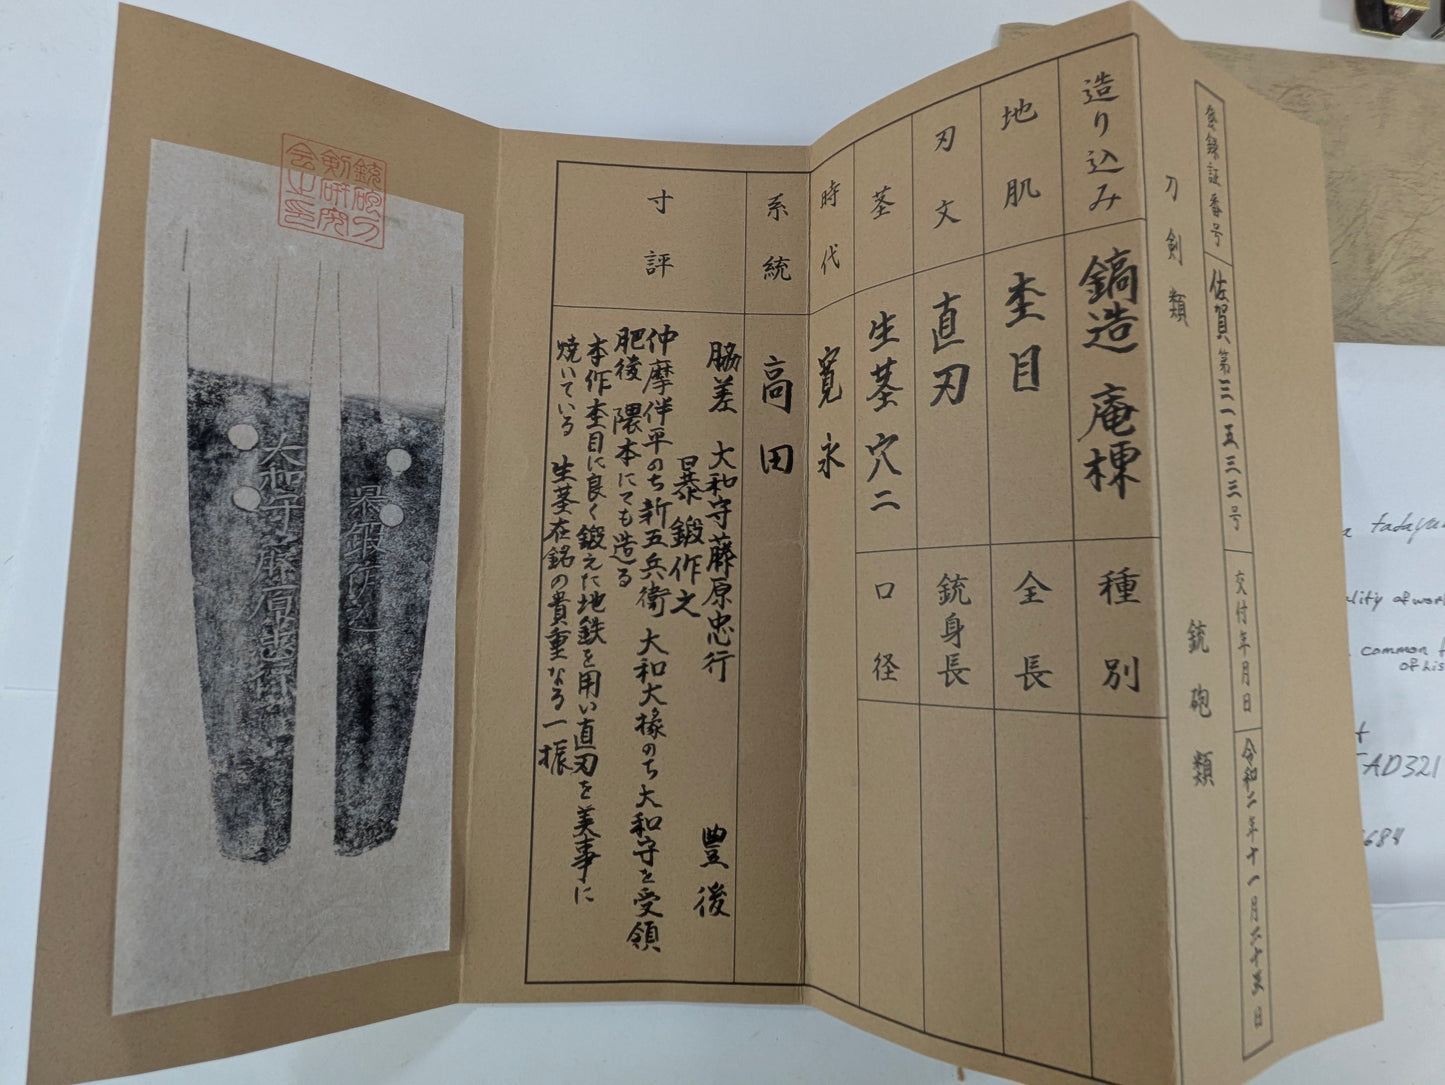 登録証番号 佐賀第三一五三三号 交付年月日 令和二年十一月二十五日
刀剣類
銃砲類
造り込み 鎬造 庵棟
種別
地肌 杢目
全長
刃文 直刃
銃身長
茎 生茎 穴二
口径
時代 寛永
系統 高田
寸評
脇差 大和守藤原忠行 豊後
暴鍛作之
仲摩伴平のち新五兵衛 大和大掾のち大和守を受領
肥後 隈本にても造る
本作杢目に良く鍛えた地鉄を用い直刃を美事に
焼いている 生茎在銘の貴重なる一振
銃砲刀
剣研究
会山之印
大和守藤原
鍛作之
tadayu
ality of wor
common
of his
TAD321
684